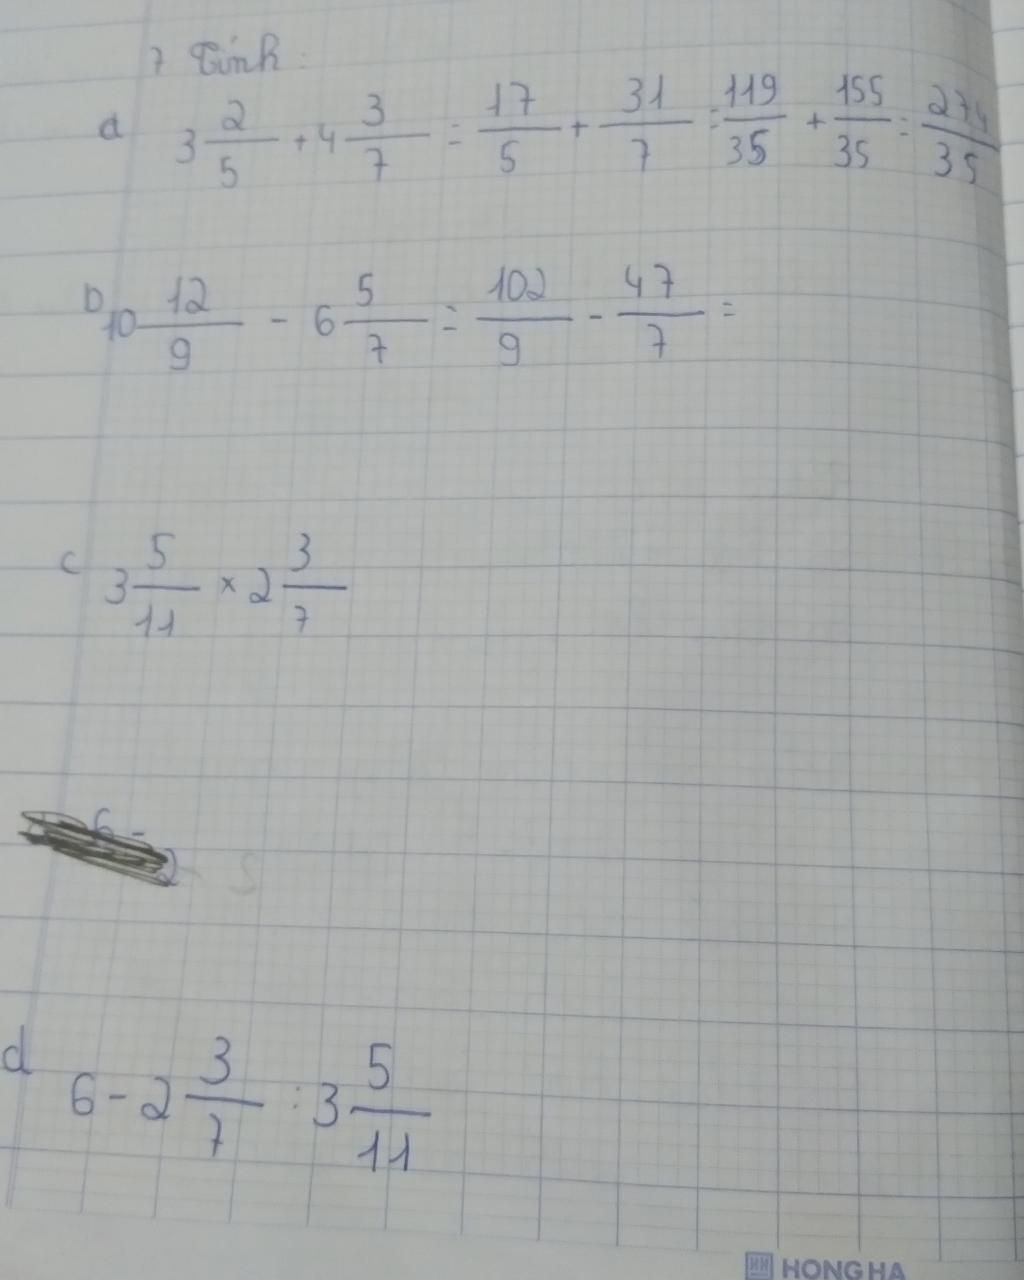 7 Tính:
a 3 2/5 + 4 3/7 = 17/5 + 31/7 = 119/35 + 155/35 = 274/35
b 10 12/9 - 6 5/7 = 102/9 - 47/7 =
c 3 5/11 × 2 3/7
d 6 - 2 3/7 : 3 5/11
HONG HA